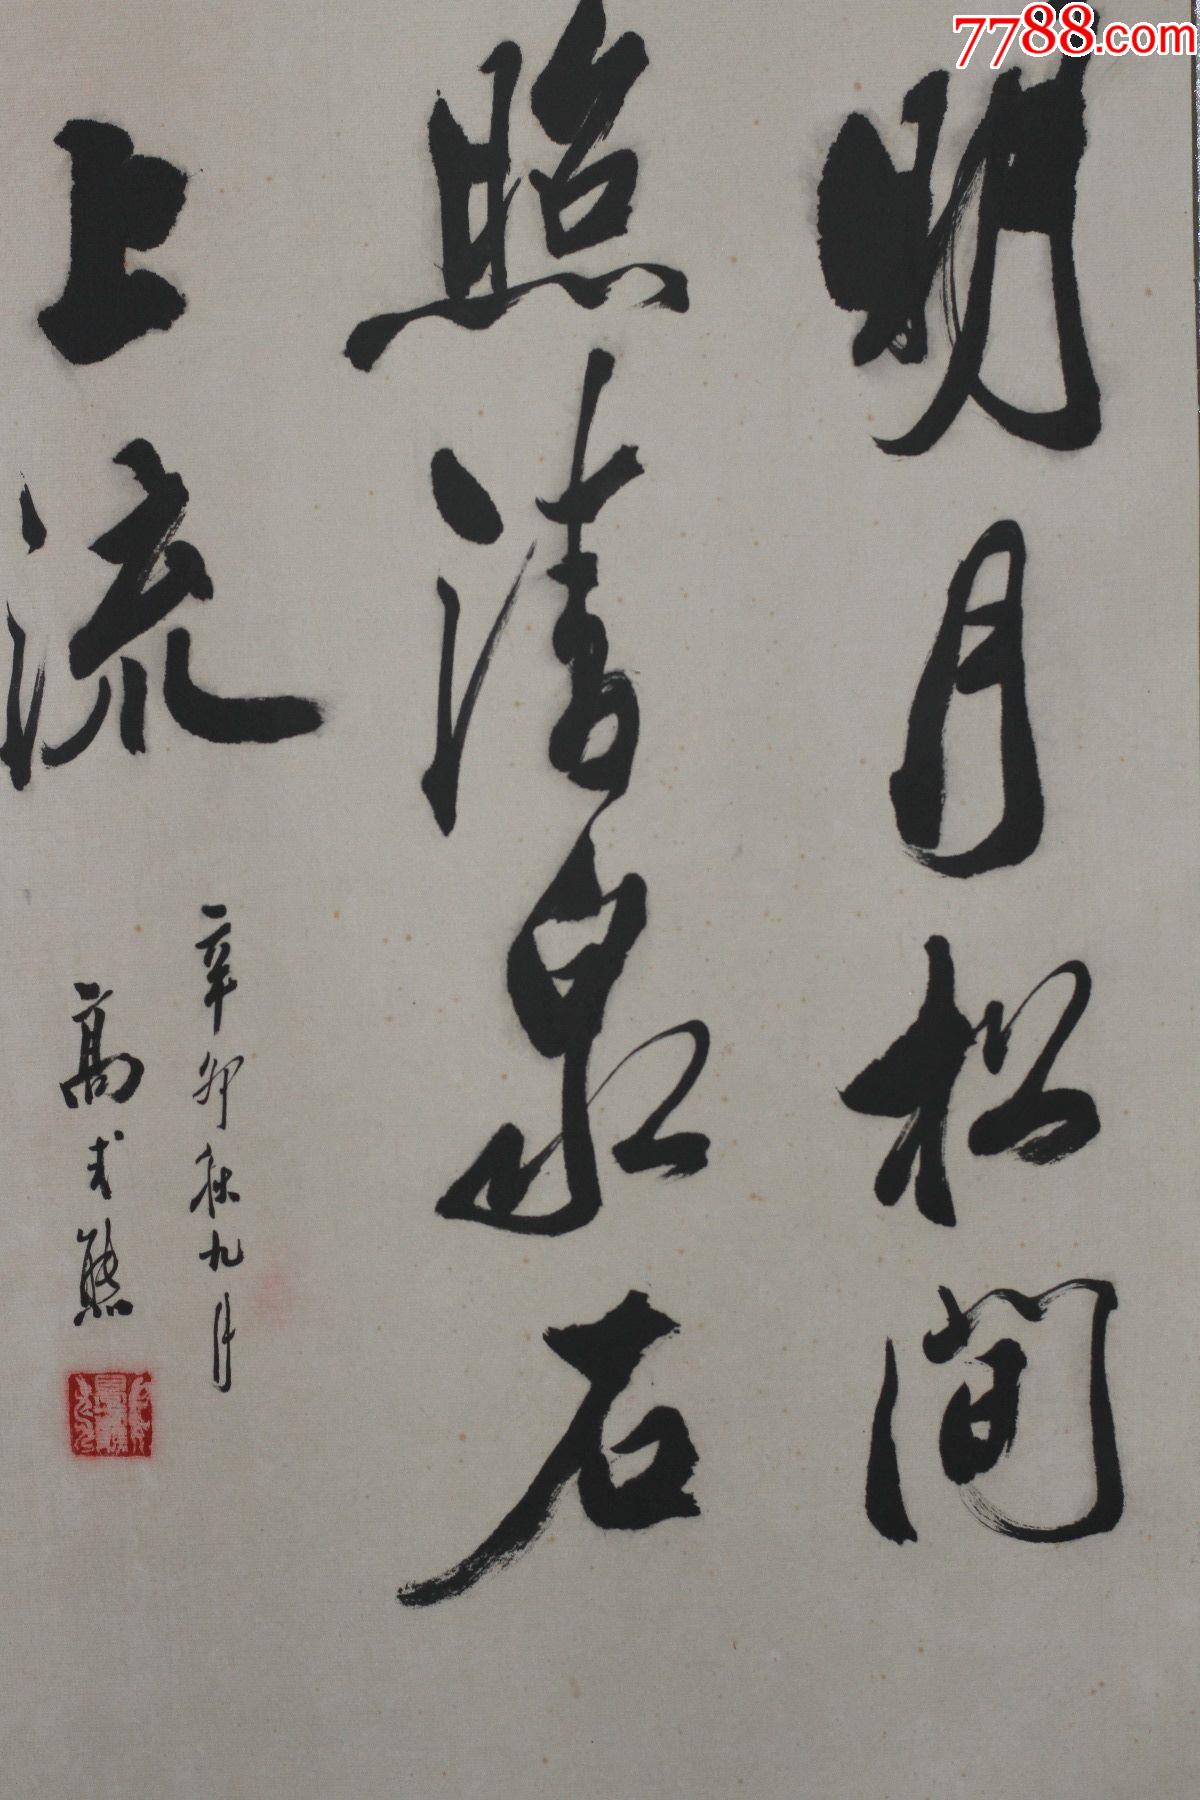 7788.com
明月松間
照清泉石
上流
辛卯秋九月
高式熊